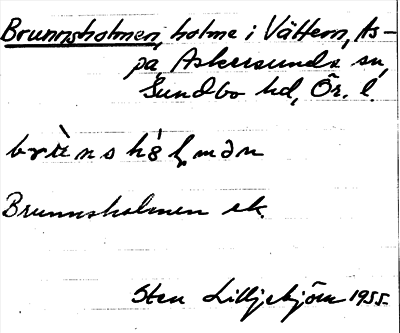 Brunnsholmen, holme i Vättern, As-
pa, Askersunds sn,
Sundbo hd, Ör. l.
Brunnsholmen ek.
Sten Lilljebjörn 1955.